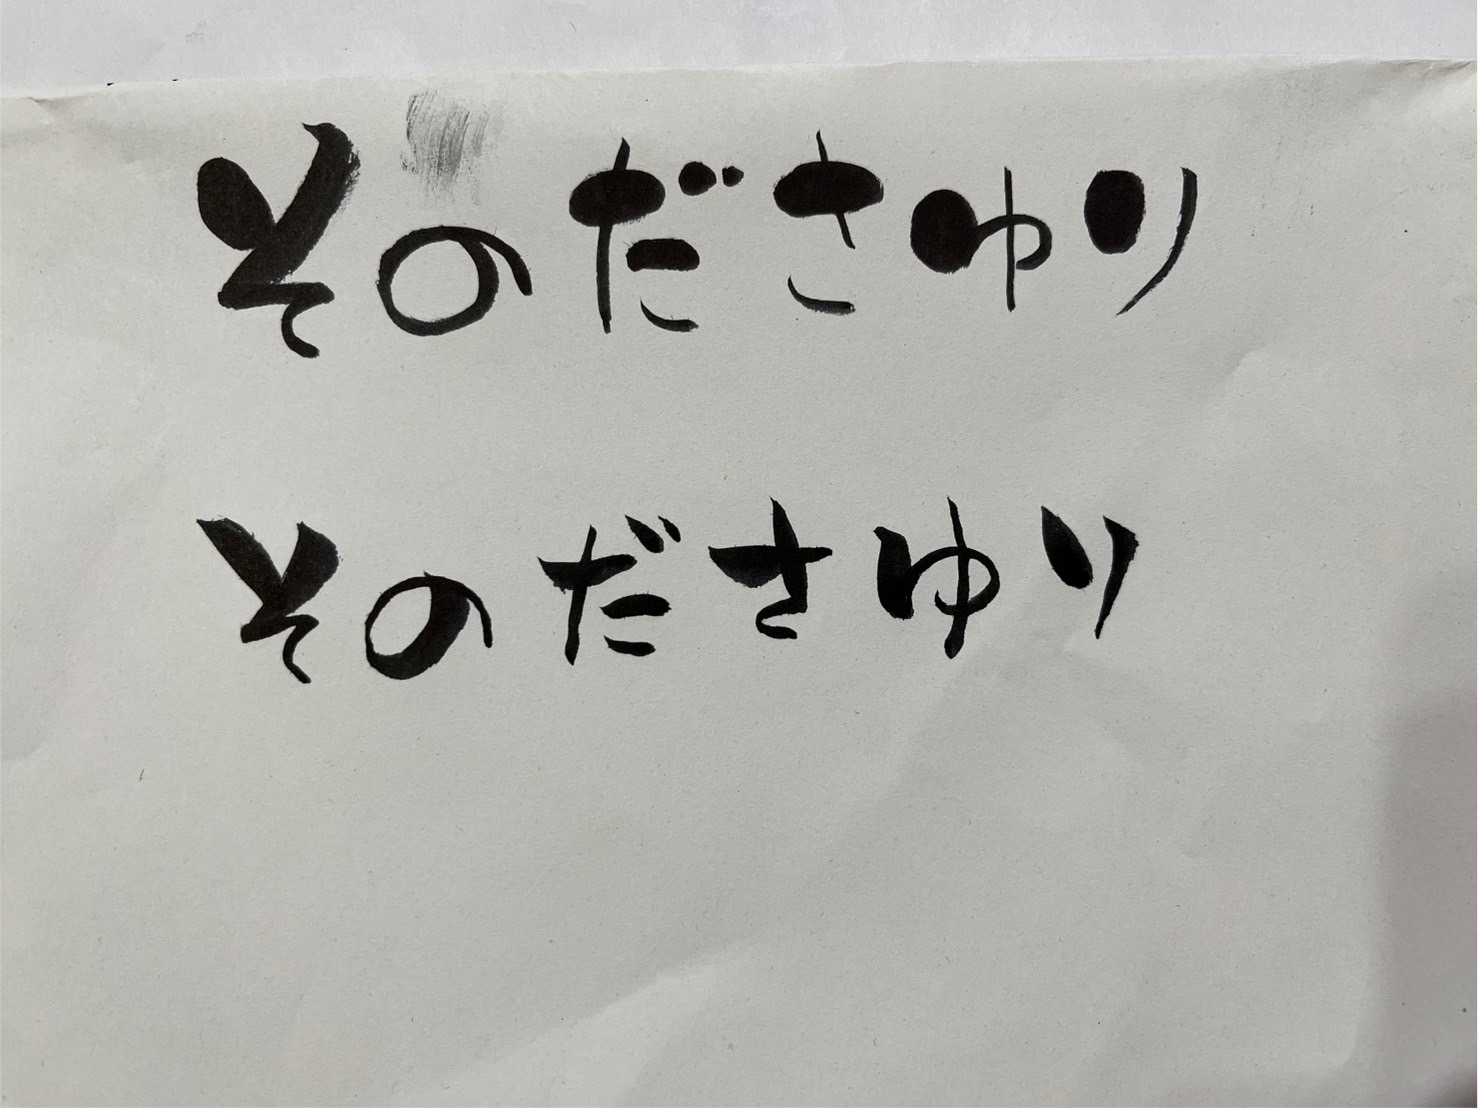 そのださゆり
そのださゆり